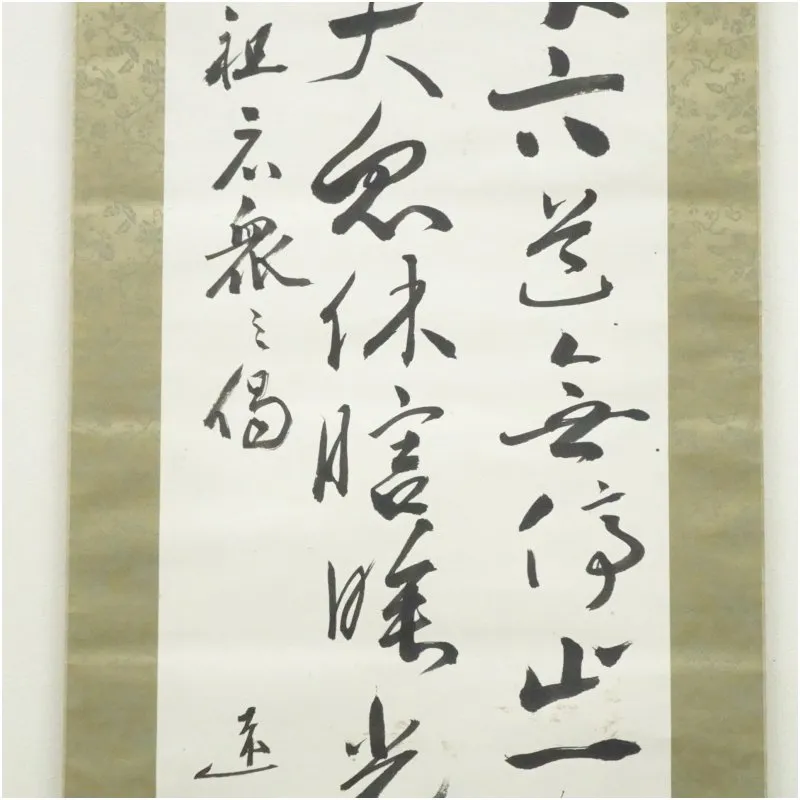 六道無停止一
大休瞎睡光
祖示衆之偈
遠